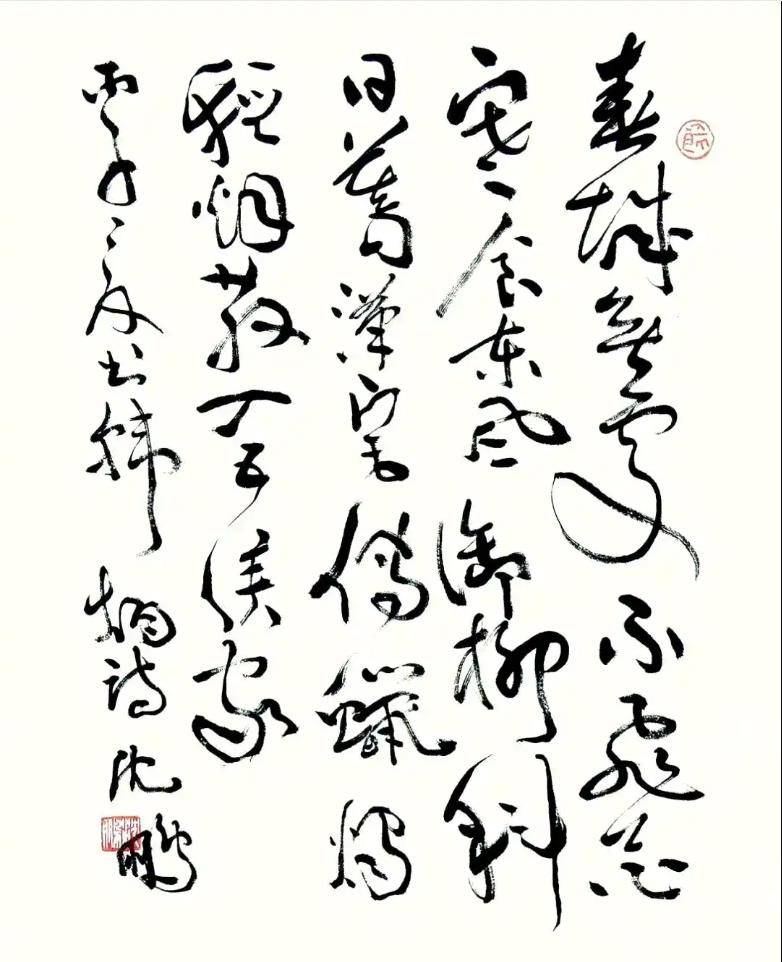 春城無處不飛花
寒食東风御柳斜
日暮漢宮傳蠟燭
輕烟散入五侯家
丙子 书韓翃詩 沈鵬